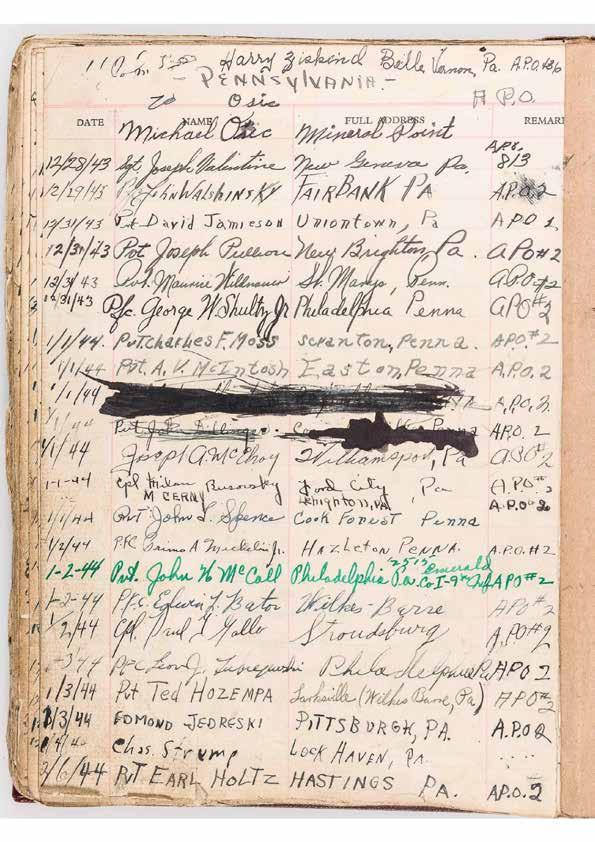 Harry Ziskind Belle Vernon, Pa. A.P.O.
- PENNSYLVANIA -
to Osic A P.O.
DATE NAME FULL ADDRESS REMAR
Michael Osic Mineral Point
12/28/43 Sgt. Joseph Valentine New Geneva Pa. A.P.O. 813
12/29/43 John Walshinsky FAIRBANK PA A.P.O. 2
12/31/43 Pvt David Jamieson Uniontown, Pa APO 2
12/31/43 Pvt Joseph New Brighton, Pa. APO #2
12/31/43 Pvt. Maurice St. Marys, Penn. A.P.O. #2
12/31/43 Pfc. George W. Shultz Jr Philadelphia Penna APO #2
1/1/44. Pvt Charles F. Moss Scranton, Penna. APO #2
1/1/44 Pvt. A. V. McIntosh Easton, Penna A.P.O. 2
1/1/44 A.P.O. 2
1/1/44 Pvt. Penna APO. 2
1/1/44 Joseph A. McElroy Williamsport, Pa A.P.O. 2
1-1-44 Cpl Milan Ford City, Pa (A.P.O. #2
M CERNY Lehighton, PA A.P.O. #2
1/1/44 Pvt John L. Spence Cook Forest Penna
1/2/44 PFC Primo A Jr. Hazleton Penna. A.P.O. #2
2513 Emerald
1-2-44 Pvt. John H McCall Philadelphia Pa. Co I-9th Inf APO #2
1-2-44 Pfc. Edwin L. Bator Wilkes-Barre APO #2
1/2/44 Cpl. Paul Gallo Stroudsburg A.P.O. #2
1-3-44 Pfc Leon J. Philadelphia Pa A.P.O 2
1/3/44 Pvt Ted HOZEMPA Larksville (Wilkes Barre, Pa) APO #2
1/3/44 EDMOND JEDRESKI PITTSBURGH, PA. A.P.O 2
Chas. Strump LOCK HAVEN, PA.
2/6/44 PVT EARL HOLTZ HASTINGS PA. A.P.O. 2